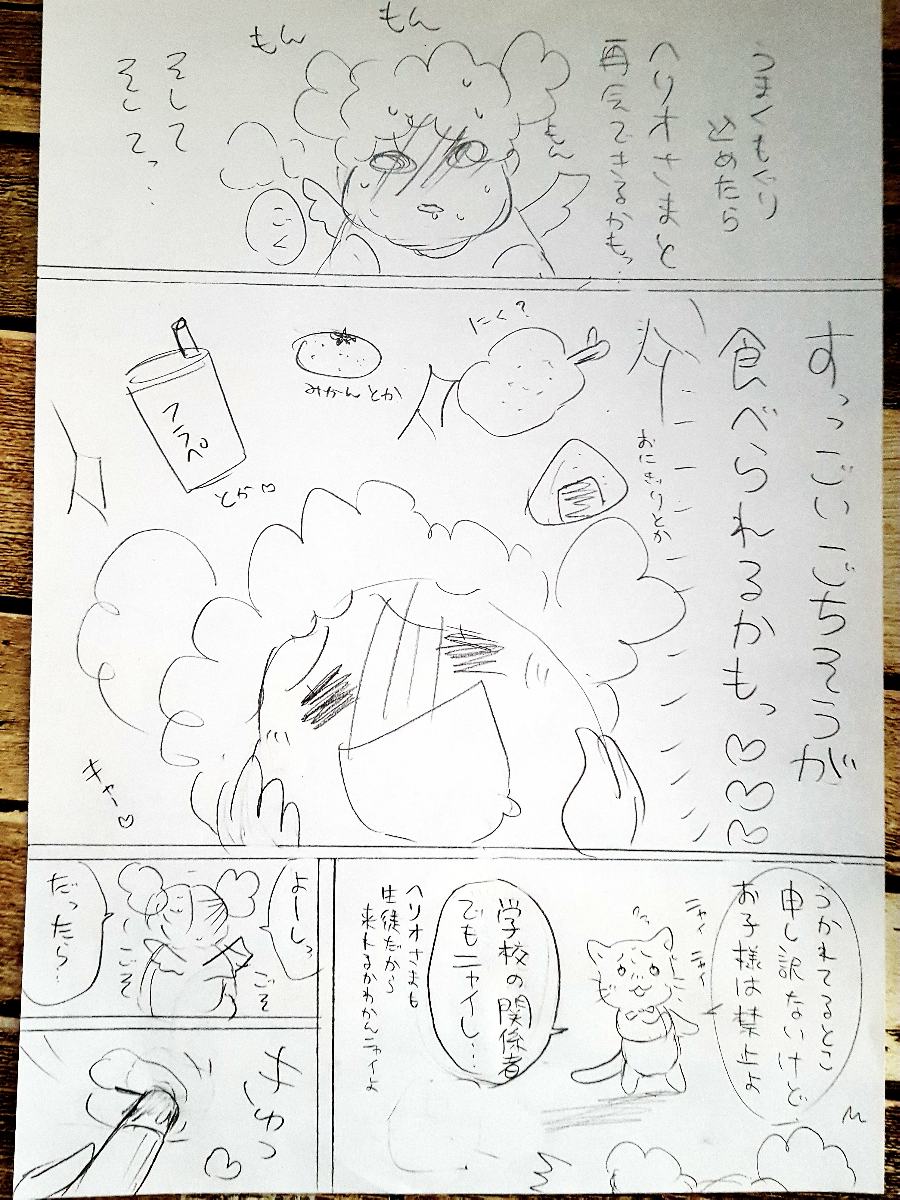 うまくもぐり
込めたら
ヘリオさまと
再会できるかもっ…
もん
もん
もん
ごく
そして
そしてっ…
すっごいごちそうが
食べられるかもっ♡♡♡
にく?
おにぎりとか
みかんとか
フラペ
とか♡
キャー♡
うかれてるとこ
申し訳ないけど
お子様は禁止よ
ニャイ
ニャイ
学校の関係者
でもニャイし…
ヘリオさまも
生徒だから
来れるかわかんニャイよ
よーしっ
だったら!
ごそ
ごそ
きゅっ
♡